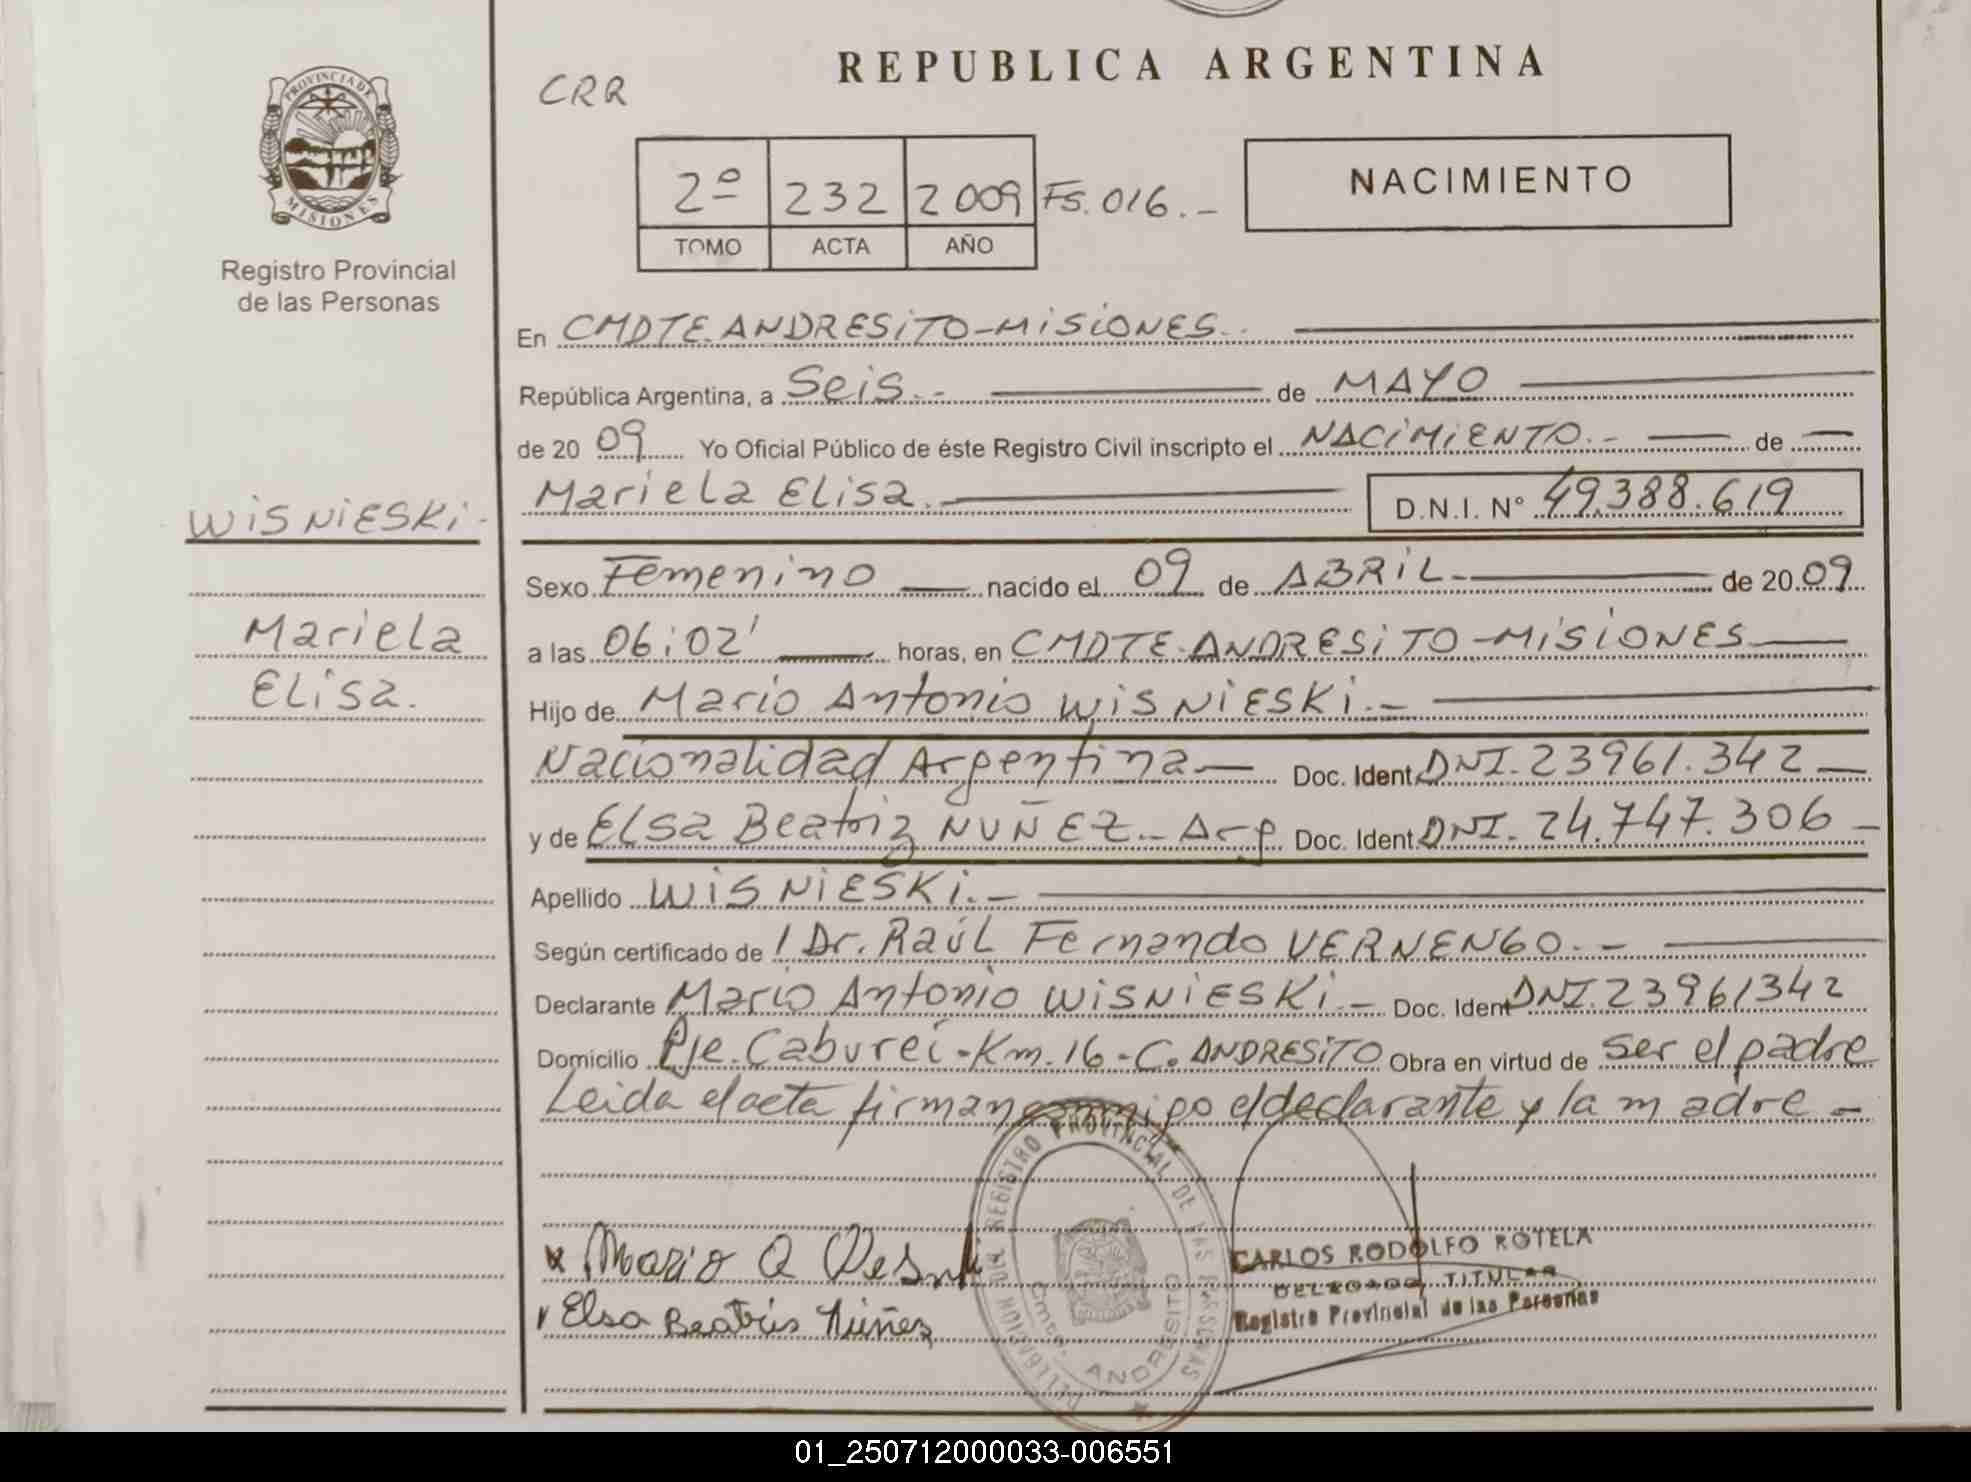 REPUBLICA ARGENTINA
CRR
PROVINCIA DE
MISIONES
Registro Provincial
de las Personas
2º 232 2009 Fs. 016.-
TOMO ACTA AÑO
NACIMIENTO
En CMDTE. ANDRESiTO-MiSiONES.-
República Argentina, a Seis.- de MAYO
de 20 09 Yo Oficial Público de éste Registro Civil inscripto el NACiMiENTO.- de
Mariela Elisa.- D.N.I. Nº 49.388.619
WiSNiESKi.-
Mariela
Elisa.
Sexo Femenino nacido el 09 de ABRiL- de 20 09
a las 06:02' horas, en CMDTE. ANDRESiTO-MiSiONES
Hijo de Mario Antonio WiSNiESKi.-
Nacionalidad Argentina- Doc. Ident. DNI. 23961.342-
y de Elsa Beatriz NUÑEZ.- Arg Doc. Ident. DNI. 24.747.306-
Apellido WiSNiESKi.-
Según certificado de Dr. Raúl Fernando VERNENGO.-
Declarante Mario Antonio WiSNiESKi.- Doc. Ident DNI. 23961342
Domicilio Pje. Cabureí-Km. 16-C. ANDRESiTO Obra en virtud de ser el padre
Leida el acta firman conmigo el declarante y la madre-
Mario A
Elsa Beatris Núñez
DELEGACION DEL REGISTRO PROVINCIAL DE LAS PERSONAS
Cmte. ANDRESITO
CARLOS RODOLFO ROTELA
DELEGADO TITULAR
Registro Provincial de las Personas
01_250712000033-006551